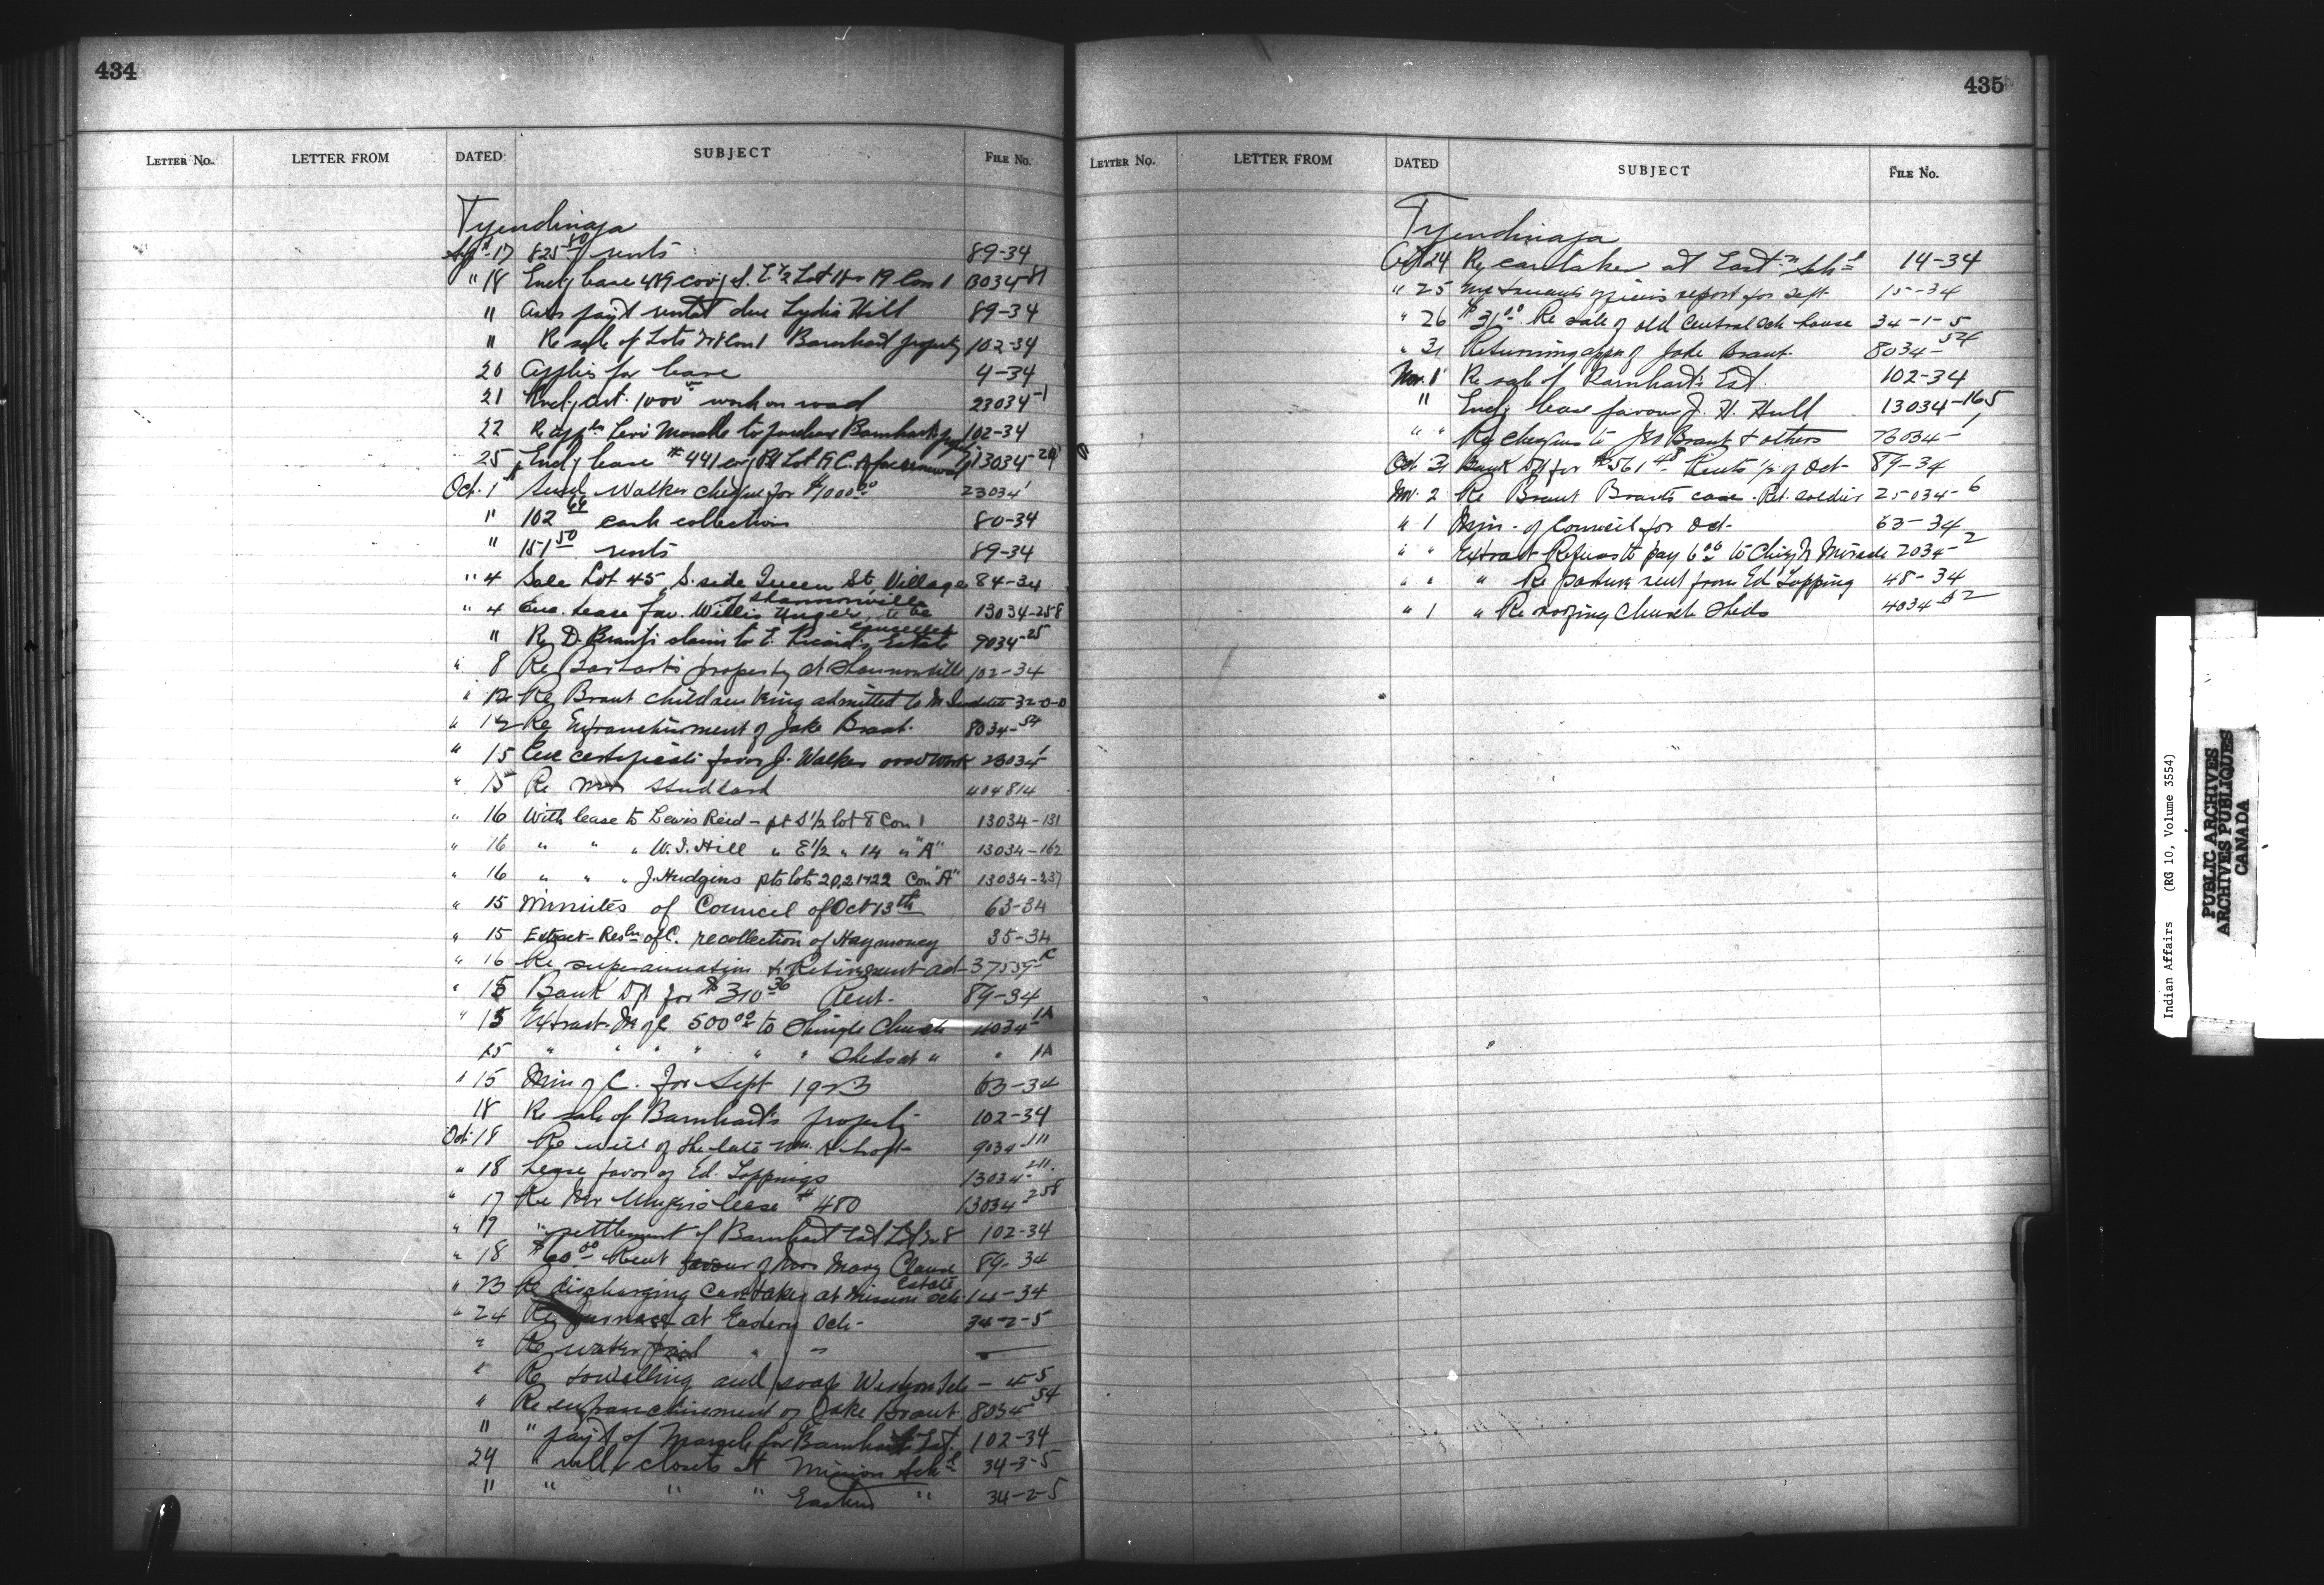 434
LETTER No. LETTER FROM DATED SUBJECT FILE No.
Tyendinaga
Sept 17 825 80 rents 89-34
" 18 Encl'g lease 489 cov'g S. E ½ Lot 18 19 Con 1 13034-81
" Asks pay't rental due Lydia Hill 89-34
" Re sale of Lots 7+8 Con 1 Barnhart property 102-34
20 Applis for lease 4-34
21 Encl'g cert. 1000 work on road 23034-1
22 Re appln Levi Maracle to purchase Barnhart 102-34
25 Encl'g lease # 441 cov'g Pt Lot 19 C. A 13034-29
Oct. 1 Walker cheque for $1000 00 23034 1
" 102 66 cash collections 80-34
" 151 50 rents 89-34
" 4 Sale Lot 45 S. side Queen St Village of Shannonville 84-34
" 4 Enc. Lease fav. Willis Unger, to be cancelled 13034-258
" Re D. Brant's claim to E. Estate 9034-25
" 8 Re property at Shannonville 102-34
" 12 Re Brant children being admitted to M. Institute 32-0-0
" 12 Re Enfranchisement of Jake Brant. 8034-54
" 15 Enc certificate favor J. Walker road work 23034 1
" 15 Re Studdard 404814
" 16 With lease to Lewis Reid - pt S½ lot 8 Con 1 13034-131
" 16 " " " W. J. Hill " E½ " 14 " "A" 13034-162
" 16 " " " J. Hudgins pts lots 20, 21+22 Con "A" 13034-237
" 15 Minutes of Council of Oct 13th 63-34
" 15 Extract - Resln of C. recollection of Hay money 35-34
" 16 Re superannuation & Retirement act 37559-C
" 15 Bank Dft for $310 36 Rent. 89-34
" 15 Extract M of C. 500 00 to Shingle Church 4034-1A
15 " " " " " " Sheds at " " 1A
" 15 Min of C. for Sept 1923 63-34
18 Re sale of Barnhart's property 102-34
Oct. 18 Re will of the late Wm. 9034-111
" 18 Lease favor of Ed. Toppings 13034-211.
" 17 Re Mr Unger's lease # 480 13034-258
" 19 " settlement of Barnhart Est. Lot 7+8 102-34
" 18 $60 00 Rent favour of Mrs Mary Claus Estate 89-34
" 23 Re discharging Caretaker at Mission Sch 14-34
" 24 Re furnace at Eastern Sch- 34-2-5
" Re water " "
" Re towelling and soap Western Sch - 4-5
" Re enfranchisement of Jake Brant. 8034-54
" " pay't of Maracle for Barnhart Est. 102-34
24 " closets at Mission Schl 34-3-5
" " " " Eastern " 34-2-5
435
LETTER No. LETTER FROM DATED SUBJECT FILE No.
Tyendinaga
Oct 24 Re caretaker at Eastn Schl 14-34
" 25 Enc truants officers report for Sept. 15-34
" 26 $31 00 Re sale of old Central Sch house 34-1-5
" 31 Returning appn of Jake Brant. 8034-54
Nov. 1 Re sale of Barnhart's Est. 102-34
" Encl'g lease favour J. H. Hull 13034-165
" " Re cheques to Jno Brant & others 23034-1
Oct. 31 Bank Dft for $561 48 Rents of Oct- 89-34
Nov. 2 Re Brant Brant's case. Ret. soldier 25-034-6
" 1 Min. of Council for Oct. 63-34
" " Extract Refuse to pay 6 00 to Chief Maracle 2034-2
" " " Re pasture rent from Ed Topping 48-34
" 1 " Re roofing Church Sheds 4034
Indian Affairs (RG 10, Volume 3554)
PUBLIC ARCHIVES
ARCHIVES PUBLIQUES
CANADA